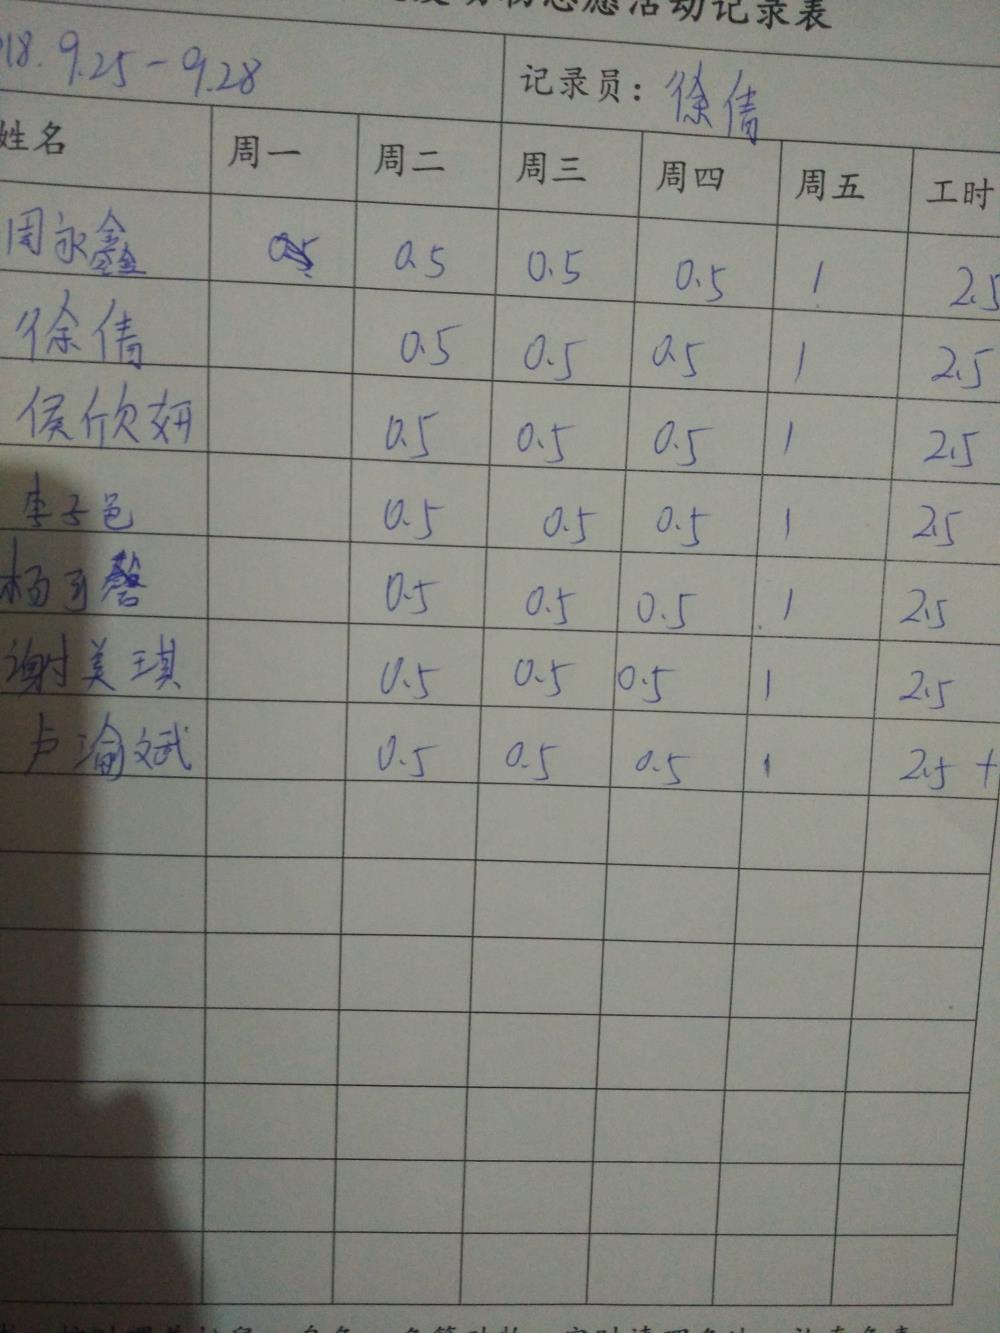 志愿活动记录表
018. 9.25-9.28 记录员: 徐倩
姓名 周一 周二 周三 周四 周五 工时
周永鑫 0.5 0.5 0.5 1 2.5
徐倩 0.5 0.5 0.5 1 2.5
侯欣妍 0.5 0.5 0.5 1 2.5
李子邑 0.5 0.5 0.5 1 2.5
杨可馨 0.5 0.5 0.5 1 2.5
谢美琪 0.5 0.5 0.5 1 2.5
卢瑜斌 0.5 0.5 0.5 1 2.5 +